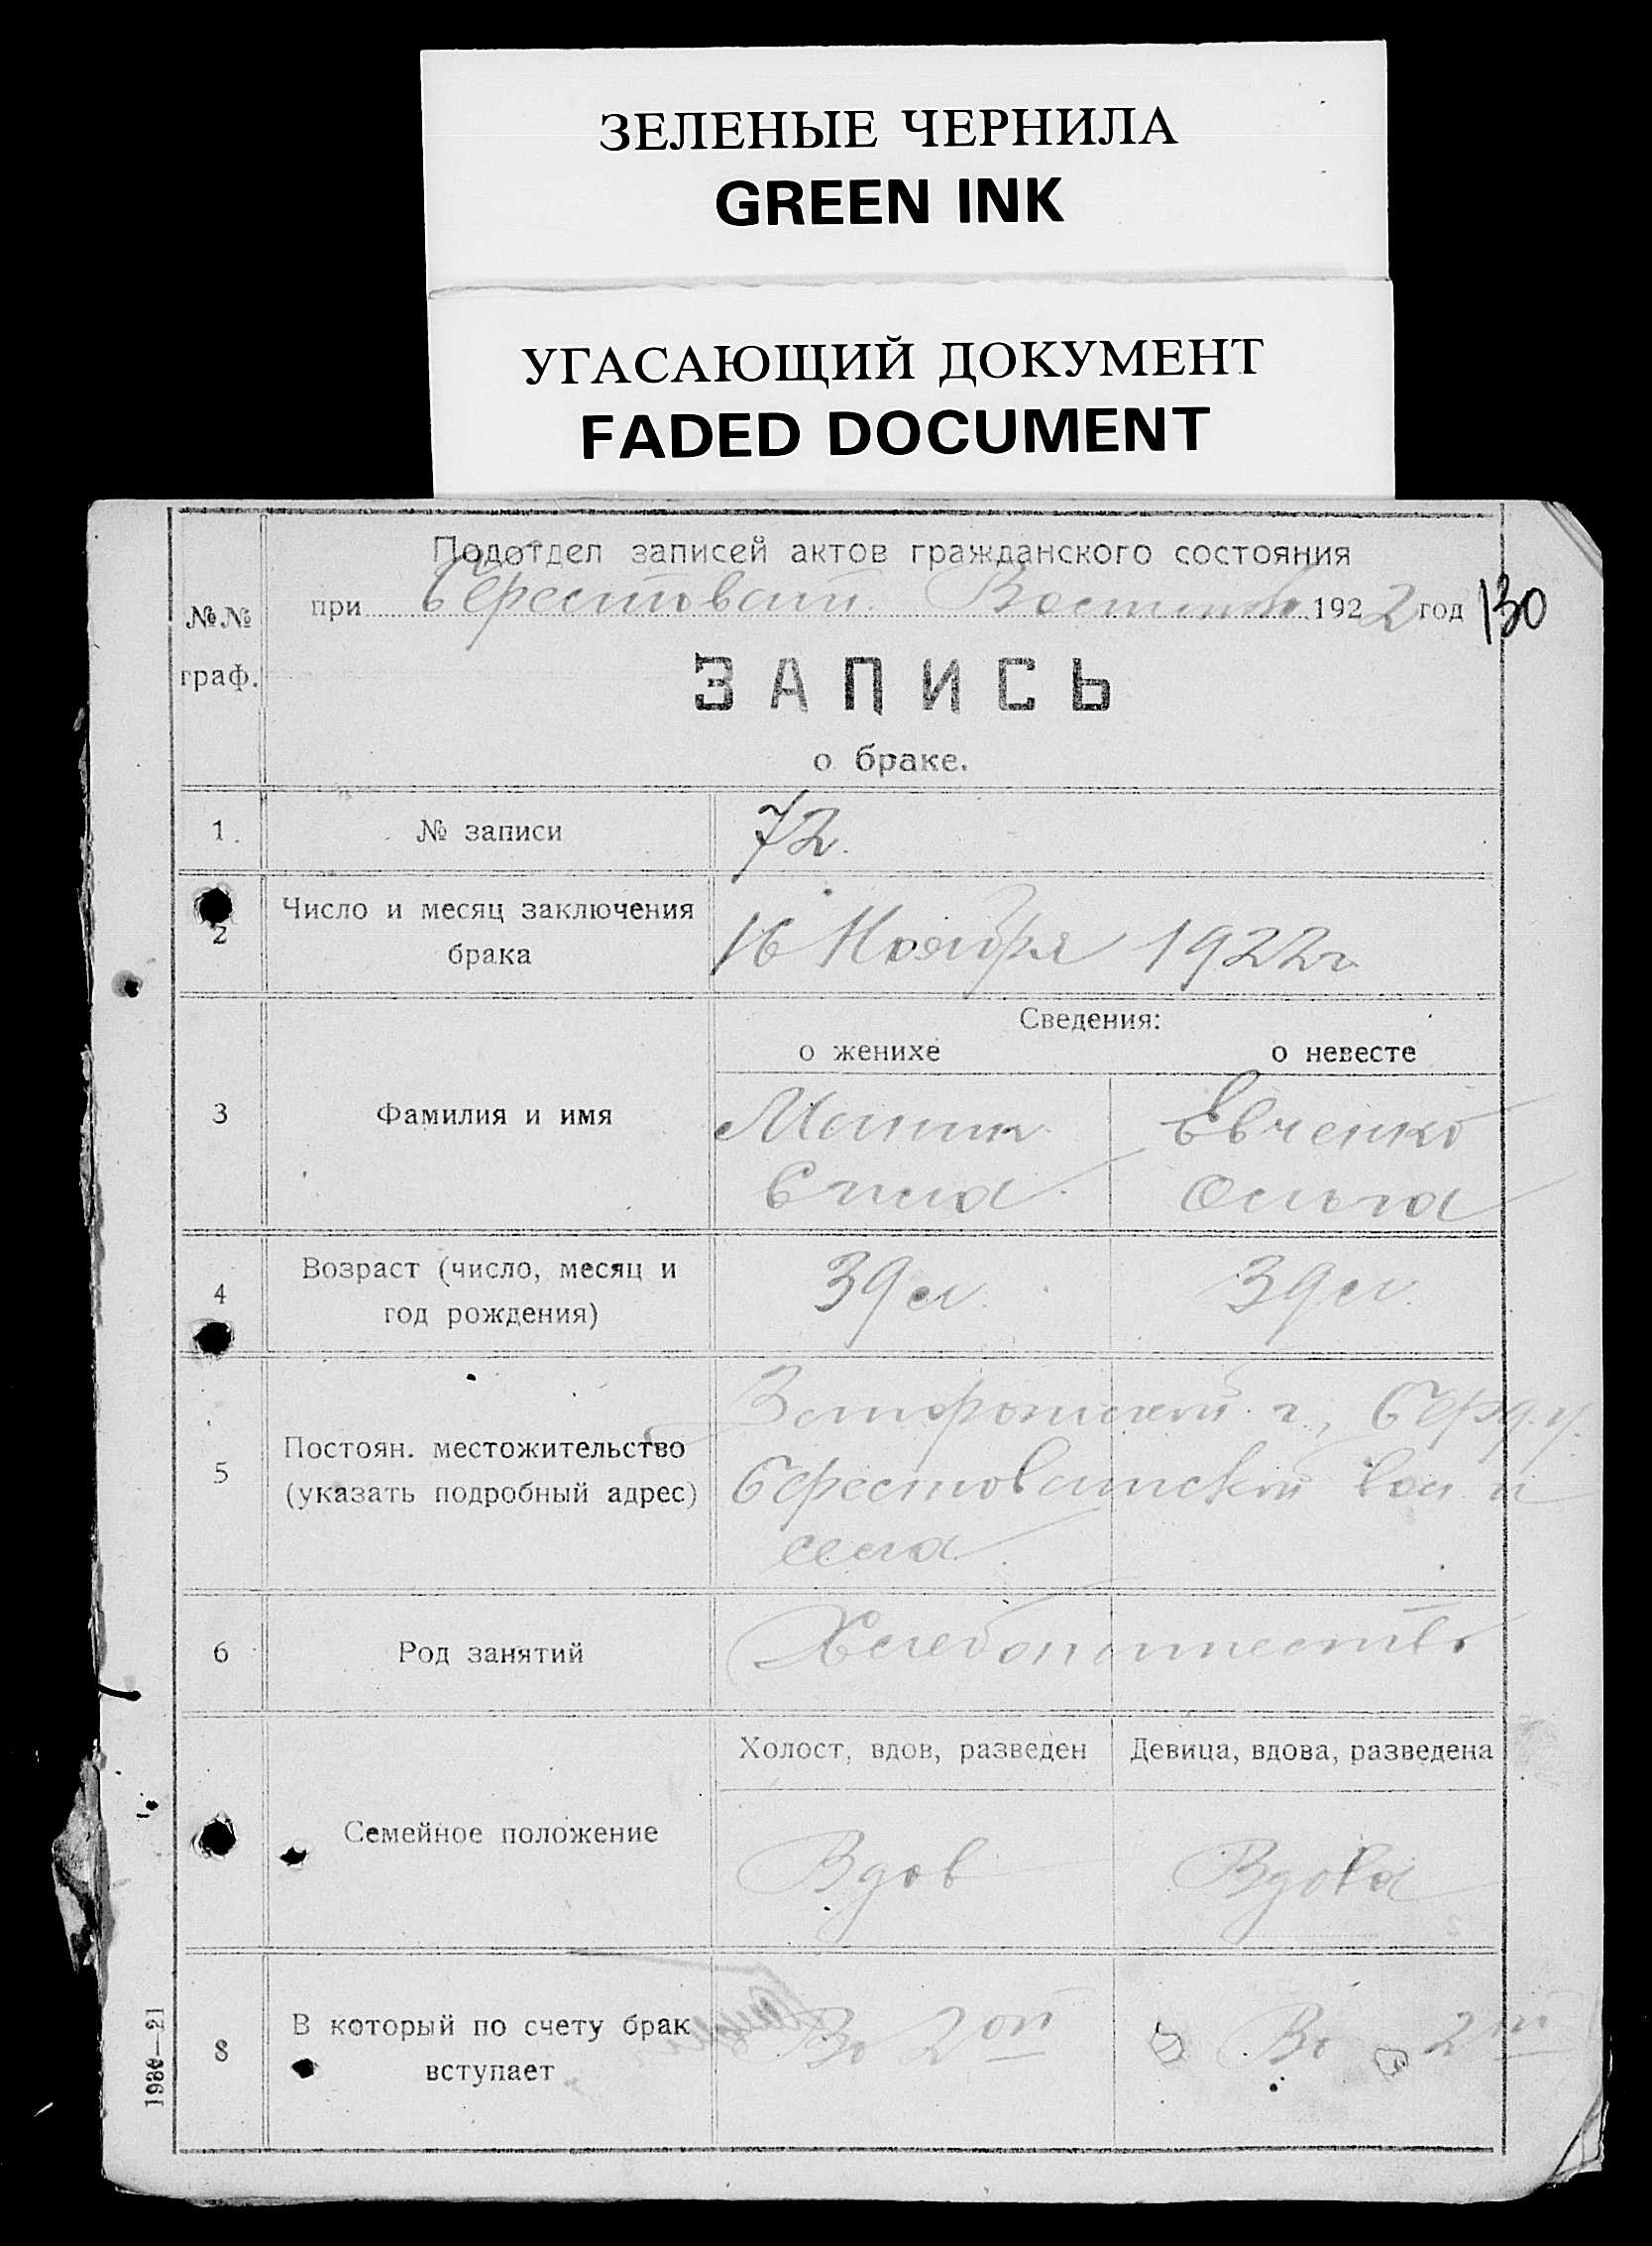 ЗЕЛЕНЫЕ ЧЕРНИЛА
GREEN INK
УГАСАЮЩИЙ ДОКУМЕНТ
FADED DOCUMENT
Подотдел записей актов гражданского состояния
№№ граф.
при Берестоват. 1922 год 130
ЗАПИСЬ
о браке.
1 № записи 72.
2 Число и месяц заключения
брака
16 Ноября 1922г
Сведения:
о женихе о невесте
3 Фамилия и имя
Евченко
Ольга
4 Возраст (число, месяц и
год рождения)
39 л. 39 л.
5 Постоян. местожительство
(указать подробный адрес)
г., Берд. у.
Берестоватской вол. и
села
6 Род занятий Хлебопашество
Холост, вдов, разведен Девица, вдова, разведена
Семейное положение
Вдов Вдова
8 В который по счету брак
вступает
Во 2ой Во 2ой